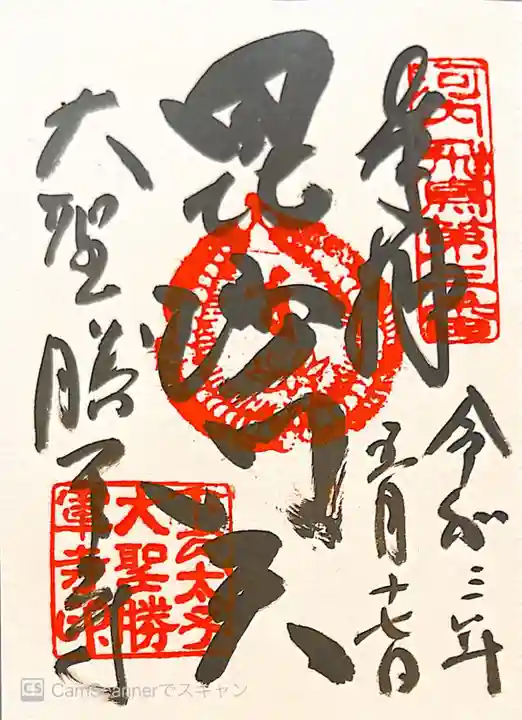 奉拝
令和三年
五月十七日
毘沙門天
大聖勝軍寺
河内飛鳥第三番
太子
大聖勝
軍寺印
CS CamScannerでスキャン